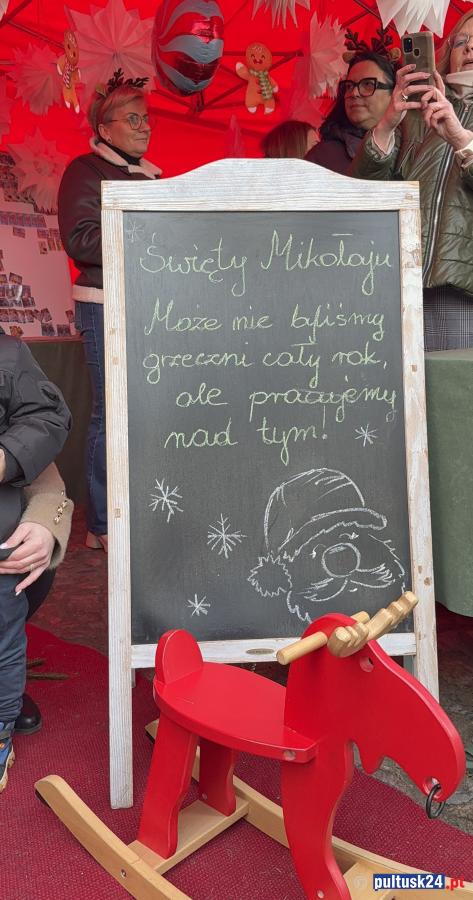 Święty Mikołaju
Może nie byliśmy
grzeczni cały rok,
ale pracujemy
nad tym!
© pultusk24.pl